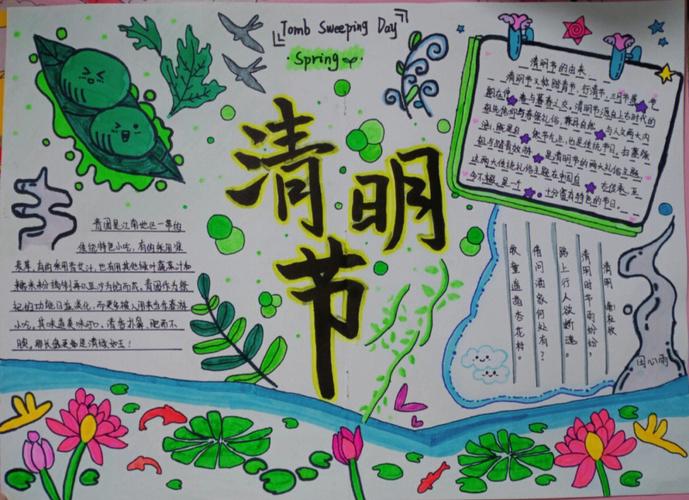 『Tomb Sweeping Day』
·Spring
清明节
清明节的由来
清明节又称踏青节、行清节、三月节
期在仲春与暮春之交。清明节源自上古时代的
祖先信仰与春祭礼俗，兼具自然与人文两大内
涵，既是自然节气点，也是传统节日，扫墓祭
祖与踏青郊游是清明节的两大礼俗主题，
这两大传统礼俗主题在中国自古传承，至
今不辍，是一十分富有特色的节日。
青团是江南地区一带的
传统特色小吃，有的采用浆
麦草，有的采用艾汁，也有用其他绿叶蔬菜汁和
糯米粉捣制再以豆沙为馅而成，青团作为祭
祀的功能日益淡化，而更多被人用来当春游
小吃，其味道美味可口，清香扑鼻，肥而不
腴，是清绿如玉！
清明
清明时节雨纷纷，
路上行人欲断魂。
借问酒家何处有？
牧童遥指杏花村。